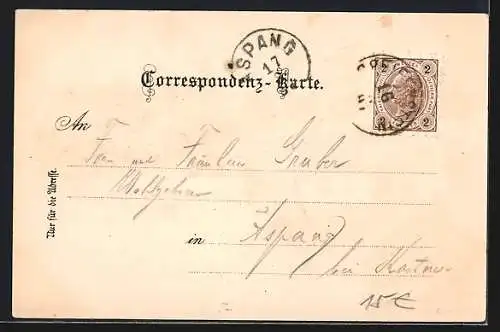 ASPANG
17
Correspondenz-Karte.
2 2
2 2
An
Frau und Fräulein Gruber
in Aspang
bei
Nur für die Adresse.
15€